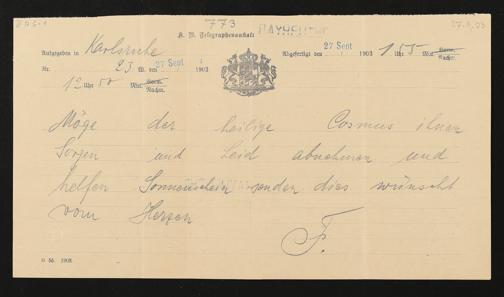 773
27.9.03
K. W. Telegraphenanstalt
Aufgegeben in Karlsruhe
Abgefertigt den 27 Sept 1903 1 Uhr 55 Min. Vorm. Nachm.
Nr. 23 W. den 27 Sept 1903
12 Uhr 50 Min. Vorm. Nachm.
Möge der heilige Cosmus ihnen
Sorgen und Leid abnehmen und
helfen Sonnenschein senden dies wünscht
vom Herzen
F.
G 56. 1903